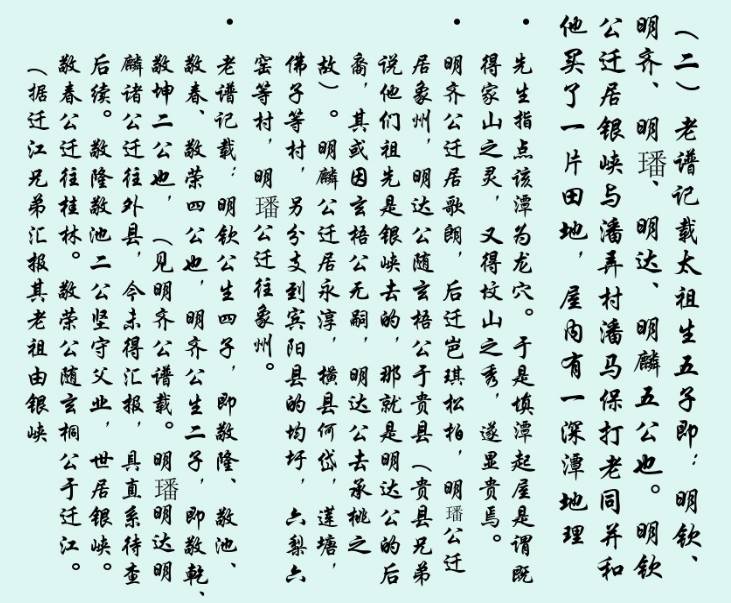 （二）老谱记载太祖生五子即：明钦、
明齐、明璠、明达、明麟五公也。明钦
公迁居银峡与潘弄村潘马保打老同并和
他买了一片田地，屋内有一深潭地理
• 先生指点该潭为龙穴。于是填潭起屋是谓既
得家山之灵，又得坟山之秀，遂显贵焉。
• 明齐公迁居歌朗，后迁岜琪松柏，明璠公迁
居象州，明达公随玄梧公于贵县（贵县兄弟
说他们祖先是银峡去的，那就是明达公的后
裔，其或因玄梧公无嗣，明达公去承桃之
故）。明麟公迁居永淳，横县何岱，莲塘，
佛子等村，另分支到宾阳县的均圩，六梨六
窑等村，明璠公迁往象州。
• 老谱记载：明钦公生四子，即敬隆、敬池、
敬春、敬荣四公也，明齐公生二子，即敬乾、
敬坤二公也，（见明齐公谱载。明璠明达明
麟诸公迁往外县，今未得汇报，具直系待查
后续。敬隆敬池二公坚守父业，世居银峡。
敬春公迁往桂林。敬荣公随玄桐公于迁江。
（据迁江兄弟汇报其老祖由银峡